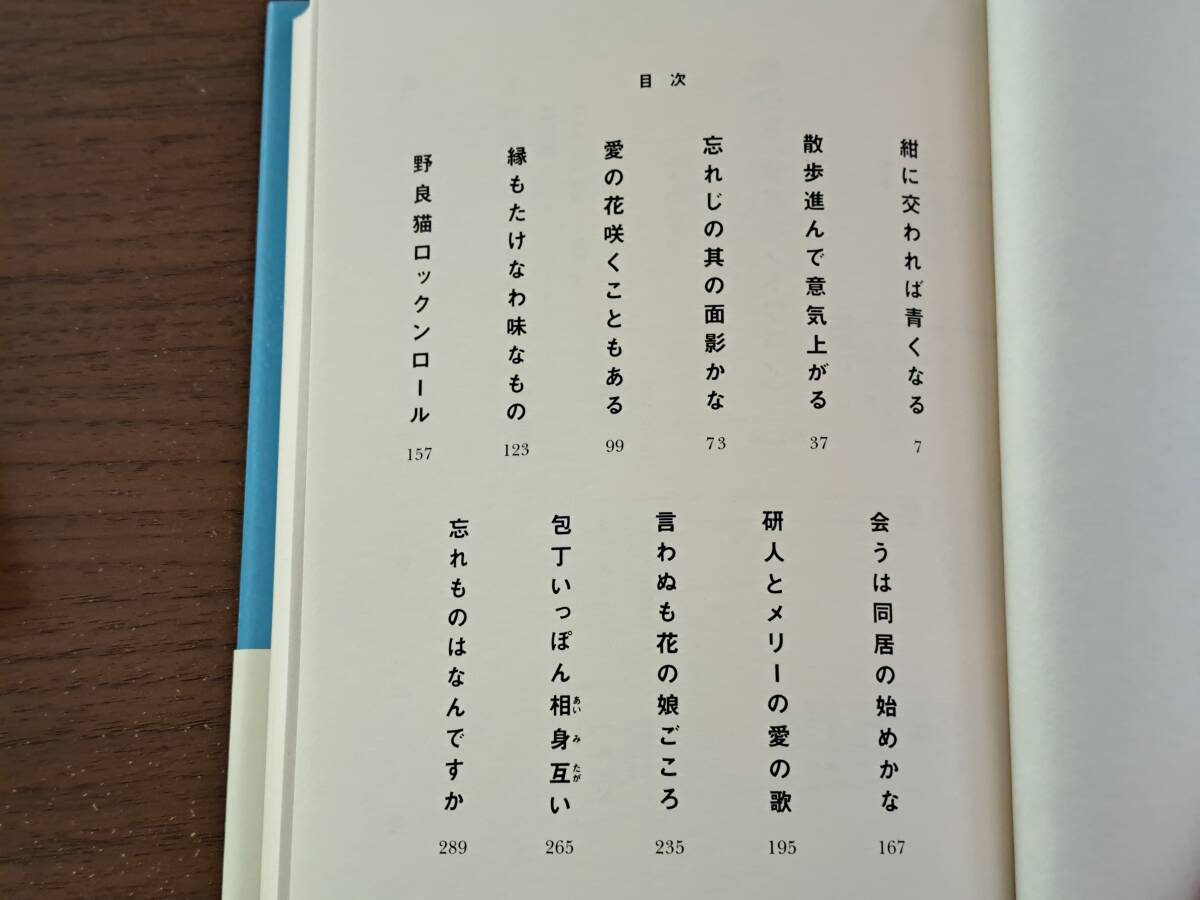 目次
紺に交われば青くなる
7
散歩進んで意気上がる
37
忘れじの其の面影かな
73
愛の花咲くこともある
99
縁もたけなわ味なもの
123
野良猫ロックンロール
157
会うは同居の始めかな
167
研人とメリーの愛の歌
195
言わぬも花の娘ごころ
235
包丁いっぽん相身互い
あいみたが
265
忘れものはなんですか
289